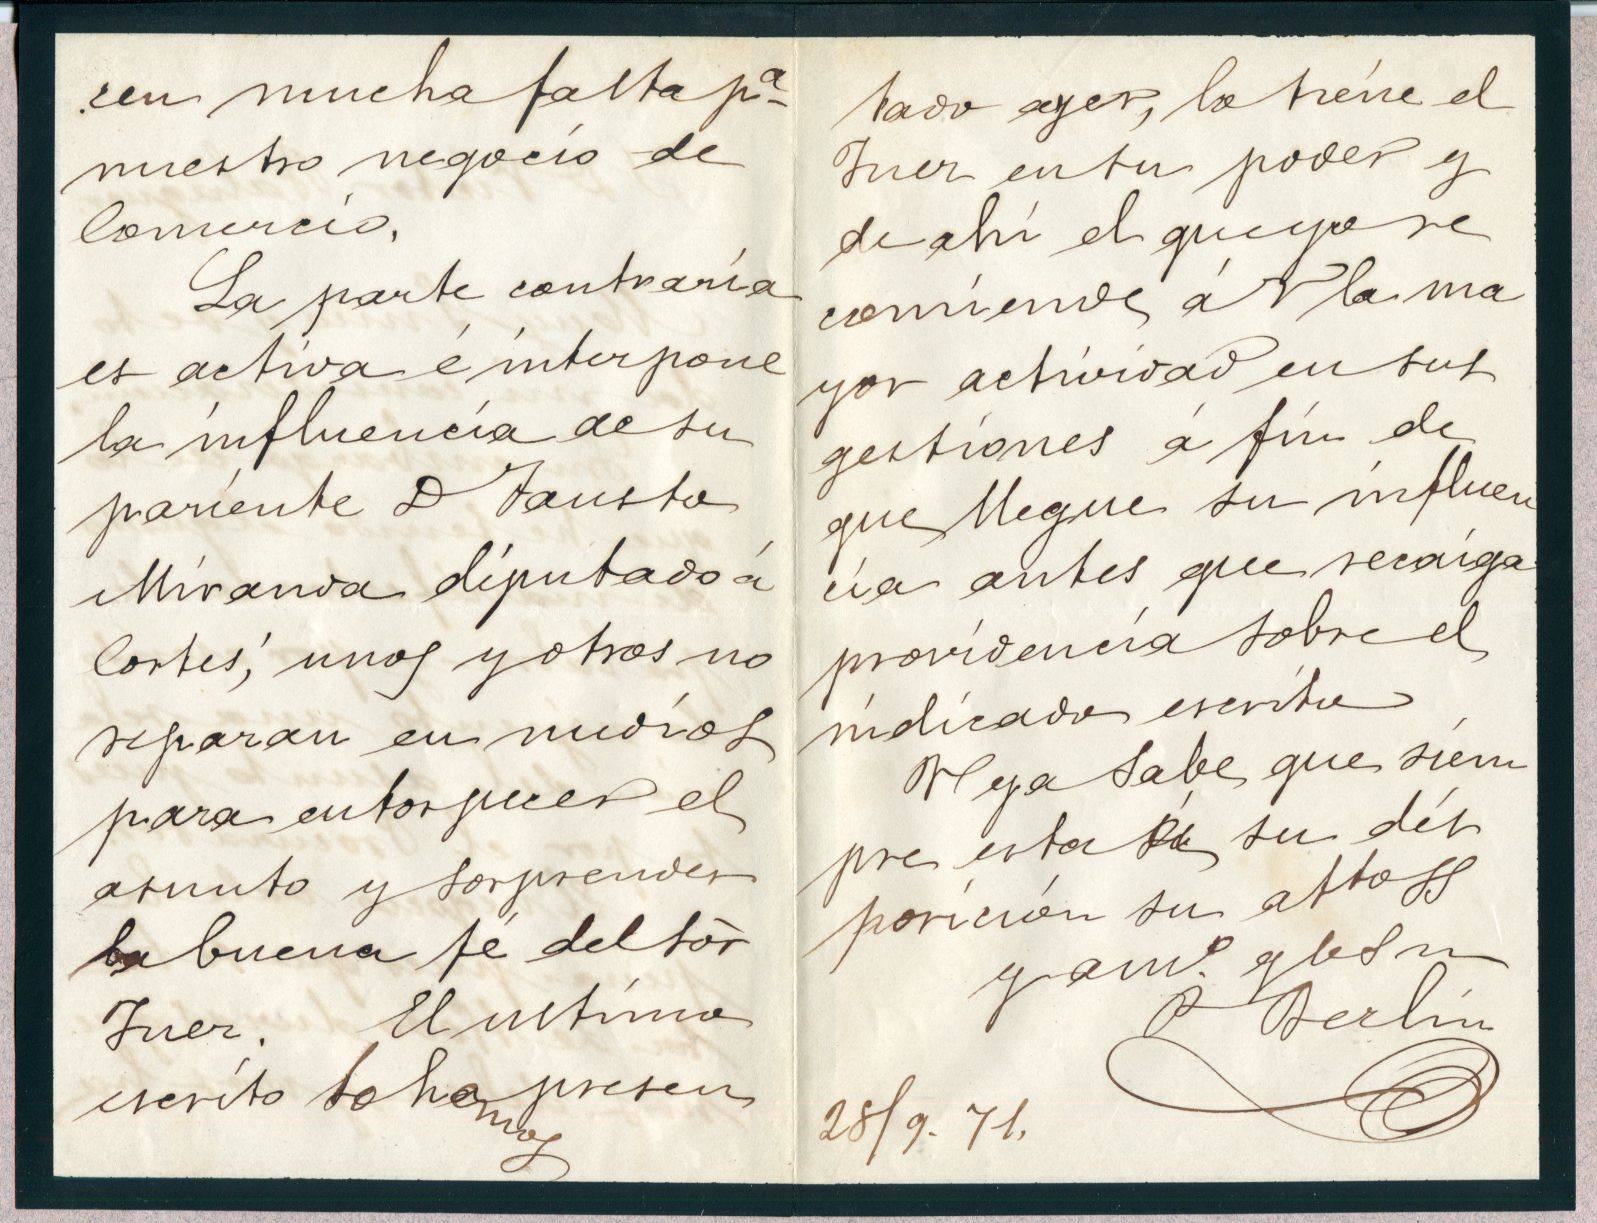 cen mucha falta pª
nuestro negocio de
Comercio.
La parte contraria
es activa é interpone
la influencia de su
pariente D Fausto
Miranda diputado á
Cortes; unos y otros no
reparan en medios
para entorpecer el
asunto y sorprender
la buena fé del Sõr
Juez. El ultimo
escrito lo hemos presen
tado ayer, lo tiene el
Juez en su poder y
de ahi el que yo re
comiende á V la ma
yor actividad en sus
gestiones á fin de
que llegue su influen
cia antes que recaiga
providencia sobre el
indicado escrito
V ya sabe que siem
pre está á su dis
posición su atto SS
y amº. q b s m
P Berlin
28/9. 71.